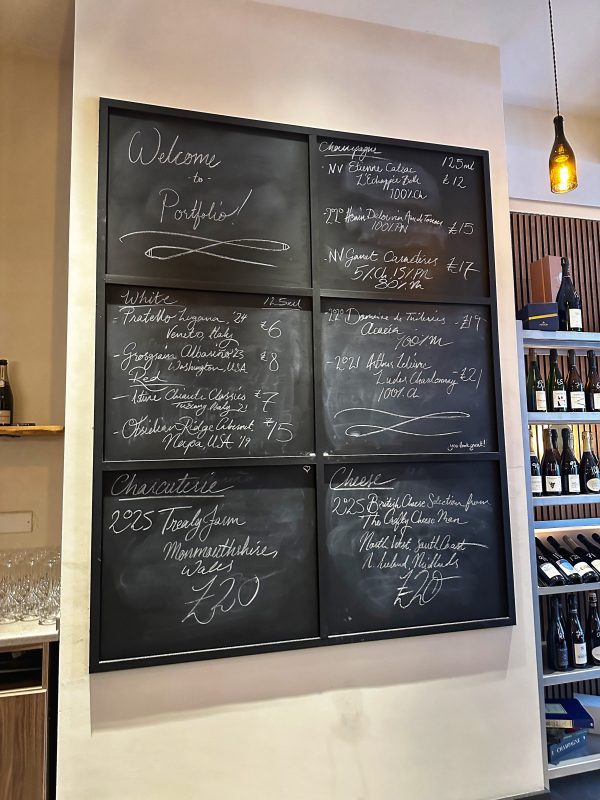 Welcome
to
Portfolio!
Champagne 125ml
·NV Etienne Calsac £12
L'Échappée Belle
100% Ch
£15
100% PN
·NV Gamet £17
5% Ch 15% PN
80% M
White 125ml
- Pratello Lugana, '24 £6
Veneto, Italy
- Grosgrain Albariño '23 £8
Washington, USA
Red
- Istine Chianti Classico £7
Tuscany Italy '21
- Obsidian Ridge Cabernet £15
Napa, USA '19
Domaine de -£19
100% M
- 2021 Arthur Lelièvre
Ludes Chardonnay -£21
100% Ch
you look great!
Charcuterie
2025 Trealy Farm
Monmouthshire,
Wales
£20
Cheese
2025 British Cheese Selection from
The Crafty Cheese Man
North West, South Coast
N. Ireland, Midlands
£20
CHAMPAGNE